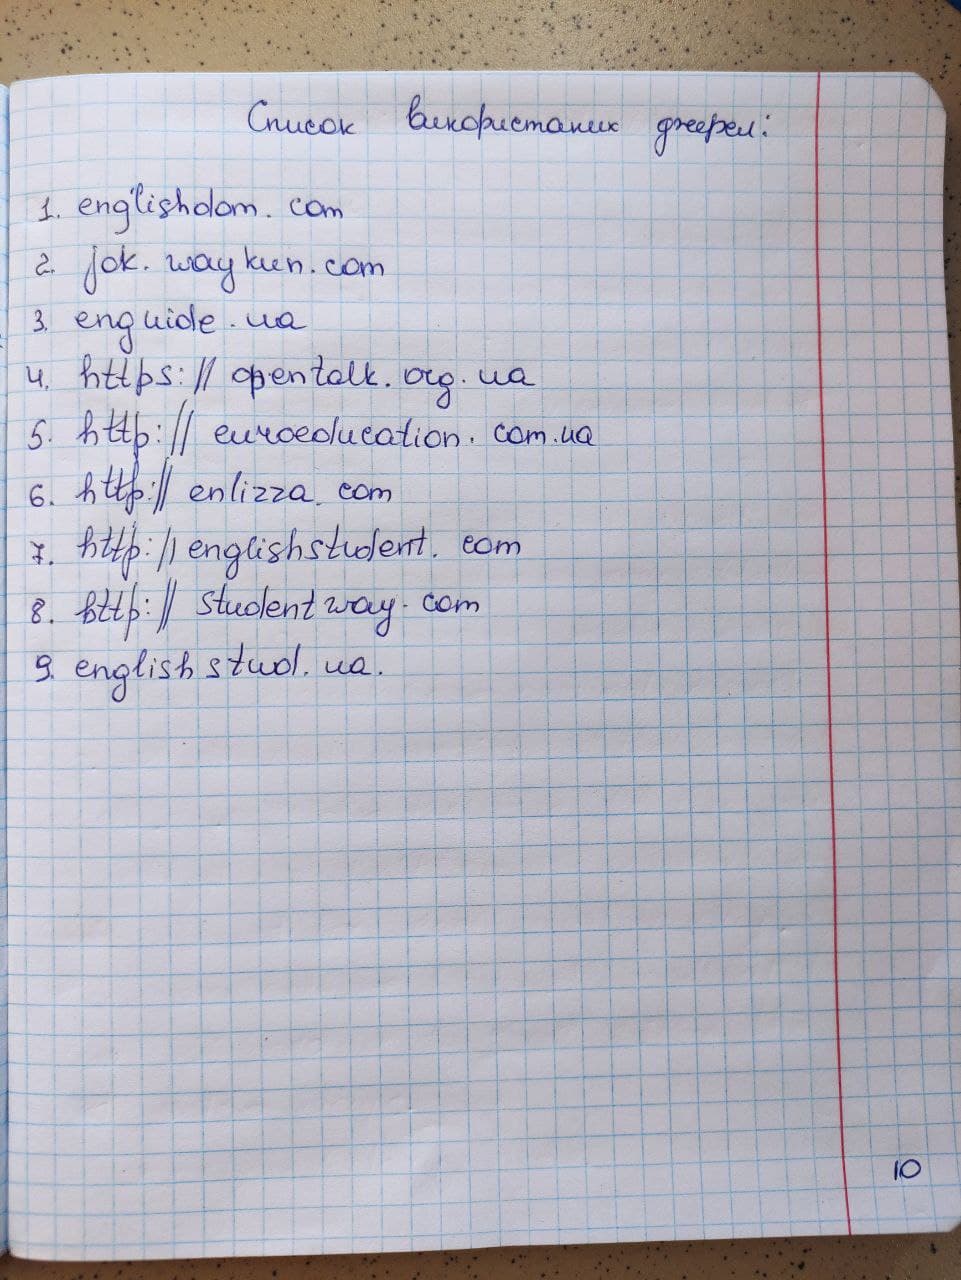 Список використаних джерел:
1. englishdom. com
2. jok. way kun. com
3. enguide. ua
4. https: // opentalk. org. ua
5. http: // euroeducation. com.ua
6. http: // enlizza. com
7. http: // englishstudent. com
8. http: // student way. com
9. english stud. ua.
10